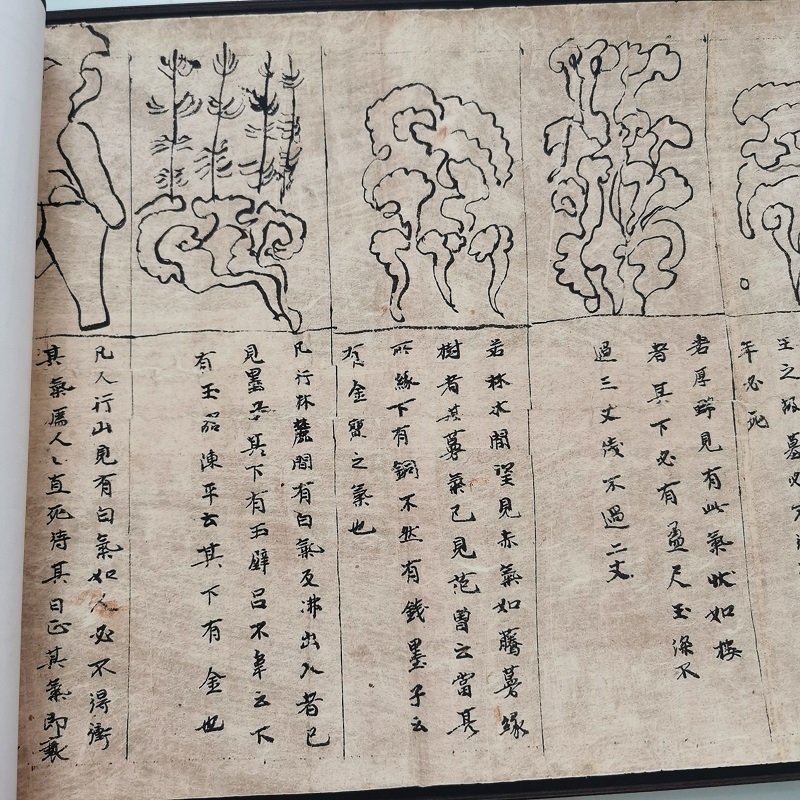 王之故墓必不
年必死
若厚野見有此氣狀如樓
者其下必有盈尺玉深不
過三丈淺不過二丈
若林木間望見赤氣如藤蔓緣
樹者其蔓氣已見范曾云當其
所緣下有銅不然有錢墨子云
有金寶之氣也
凡行林麓間有白氣及沸出入者已
見墨子其下有玉璧呂不韋云下
有玉器陳平云其下有金也
凡人行山見有白氣如人必不得衝
其氣爲人〻直死待其日正其氣即衰